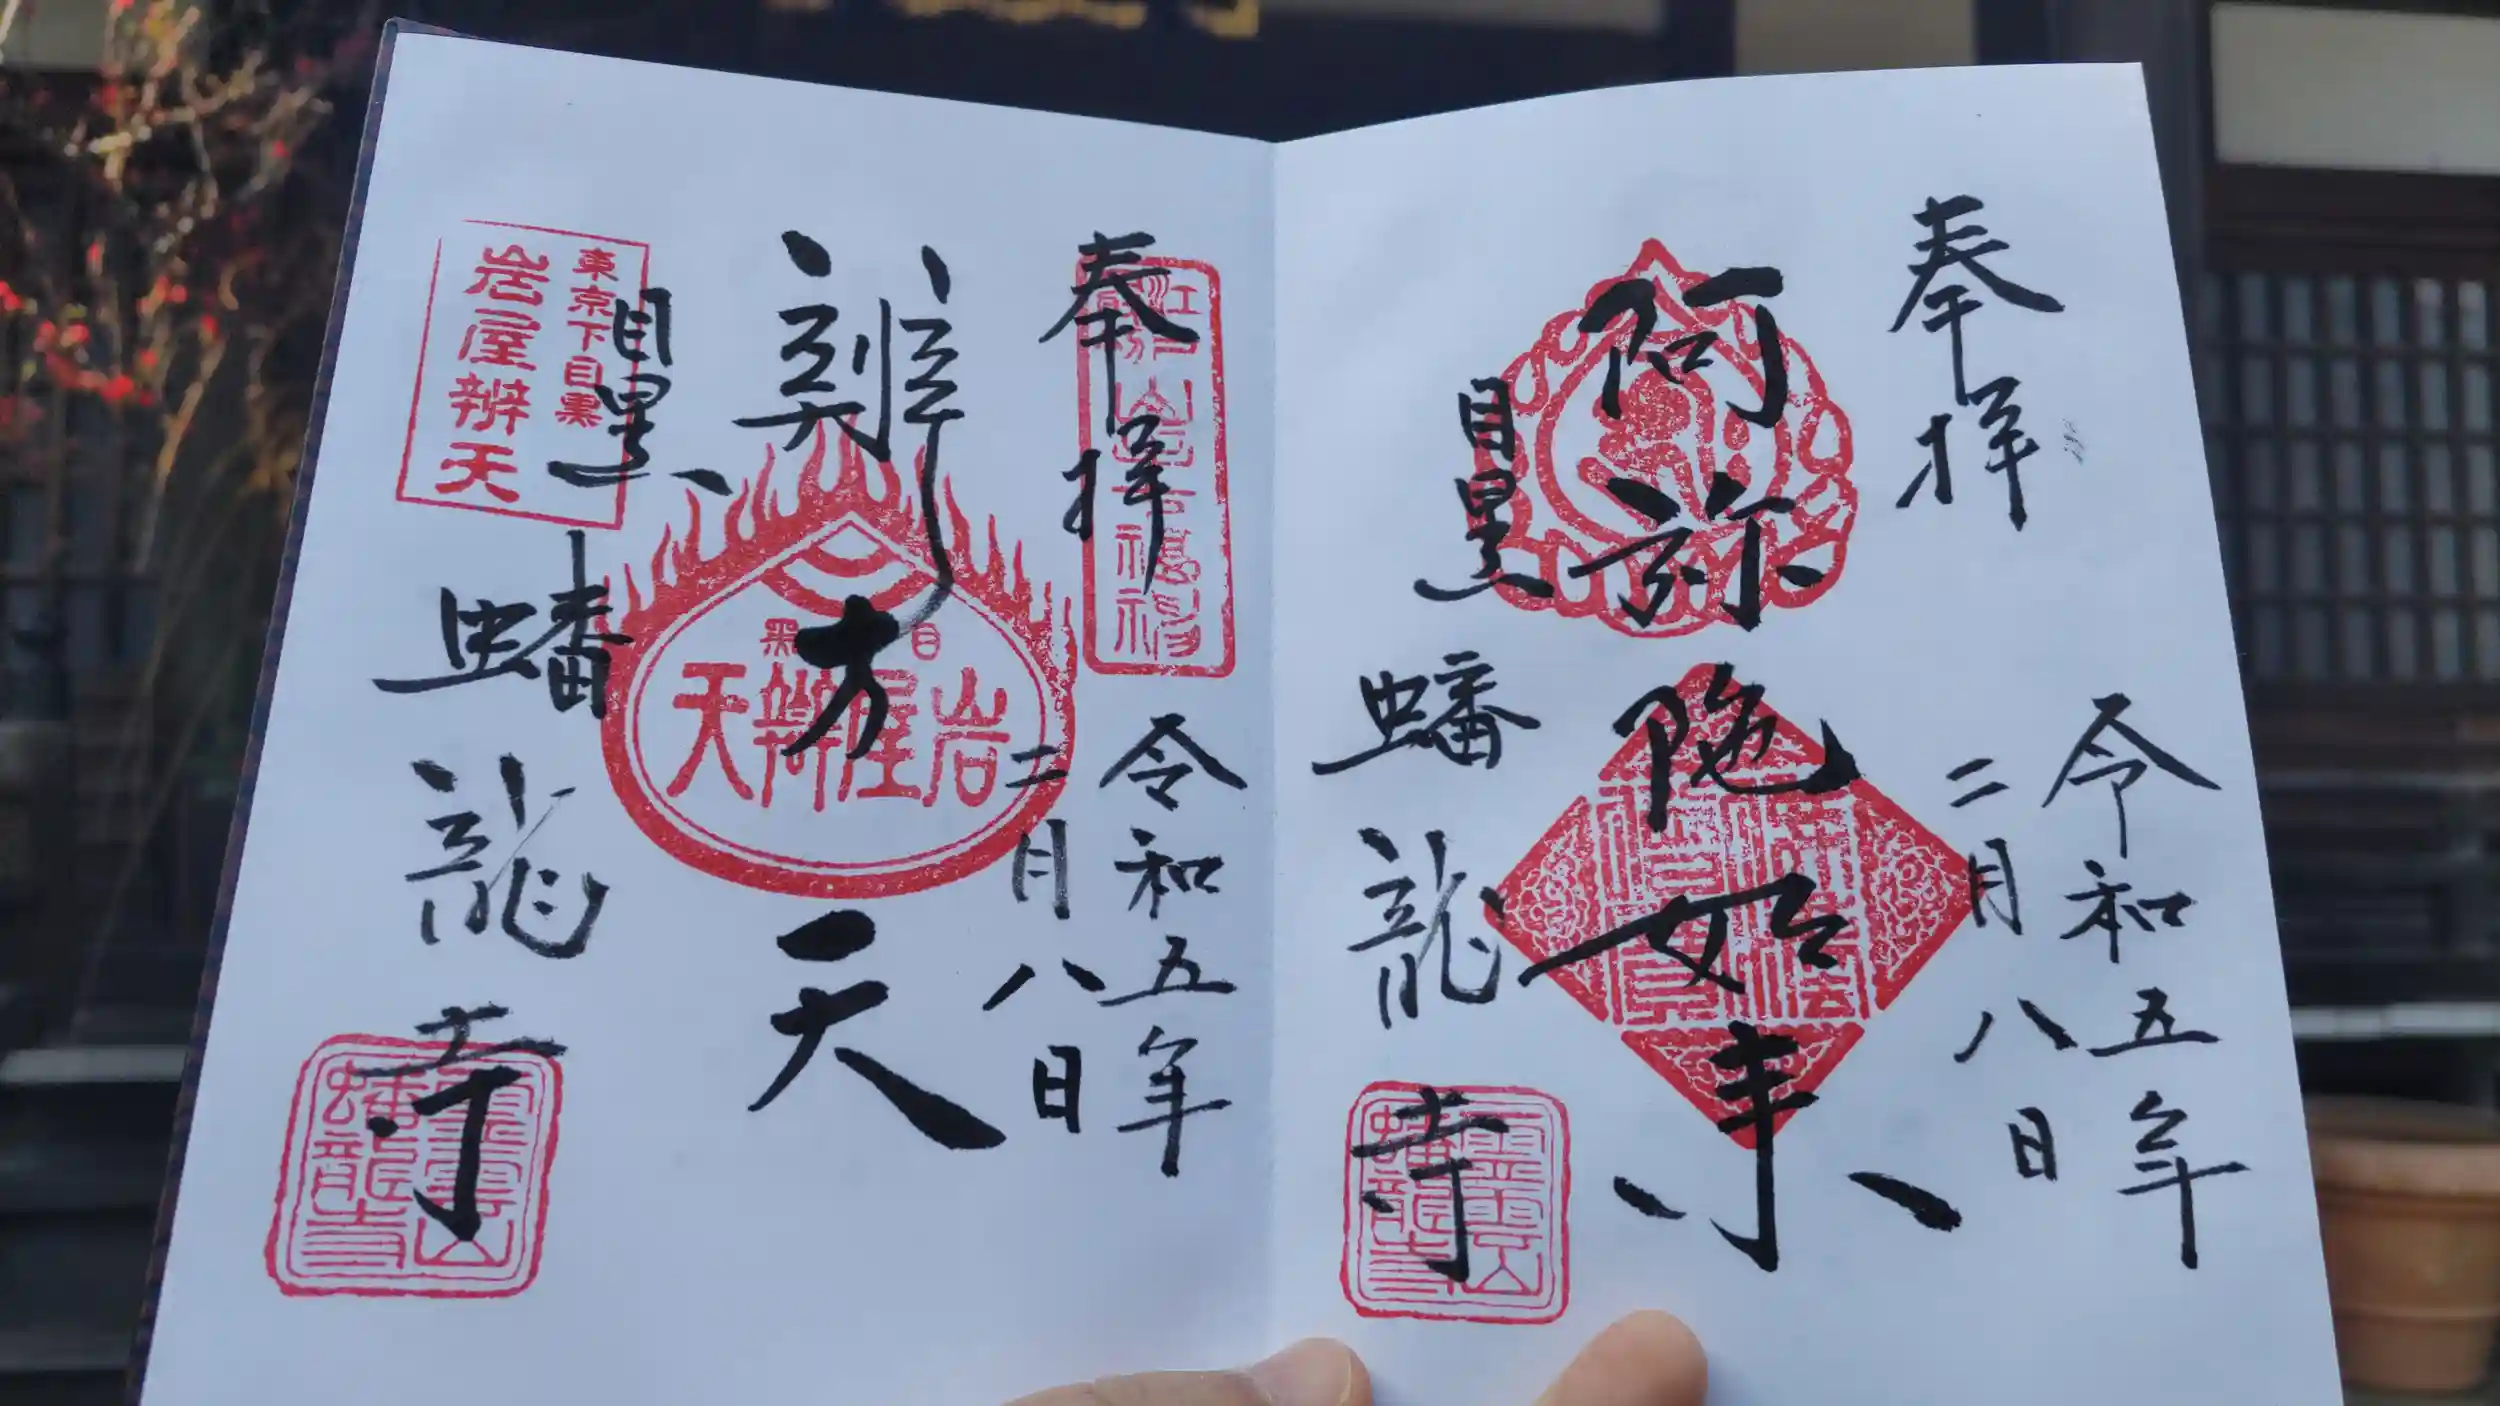 奉拝
令和五年
二月八日
阿弥陀如来
目黒
蟠龍寺
霊雲山
蟠龍寺
奉拝
令和五年
二月八日
辨才天
目黒
岩屋辨天
東京下目黒
岩屋辨天
目黒
蟠龍寺
霊雲山
蟠龍寺